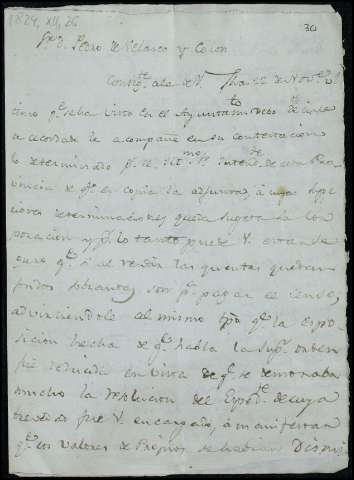 1829, XII, 26
30
Sr. D. Pedro de Velasco y Colon
Contex.on a la de V. fha 22 de Nov.e
timo q.e se ha visto en el Ayuntam.to debo
acordado le acompañe en su contestacion
lo determinado p.r el Yll.mo Sr. Intend.te de esta Pro
vincia de q.e es copia la adjunta, a cuya
determinacion queda sugeta la Cor
poracion y p.r lo tanto puede V. estar se
guro q.e si al rendir las quentas quedan
fondos sobrantes son p.a pagar el censo,
advirtiendole al mismo tpo q.e la expo
sicion hecha de q.e habla la Sup.r orden
fue reducida en vista de q.e se demoraba
mucho la resolucion del Exped.te de cuya
fue V. encargado, á manifestar
q.e los valores de Propios se habian Dismi